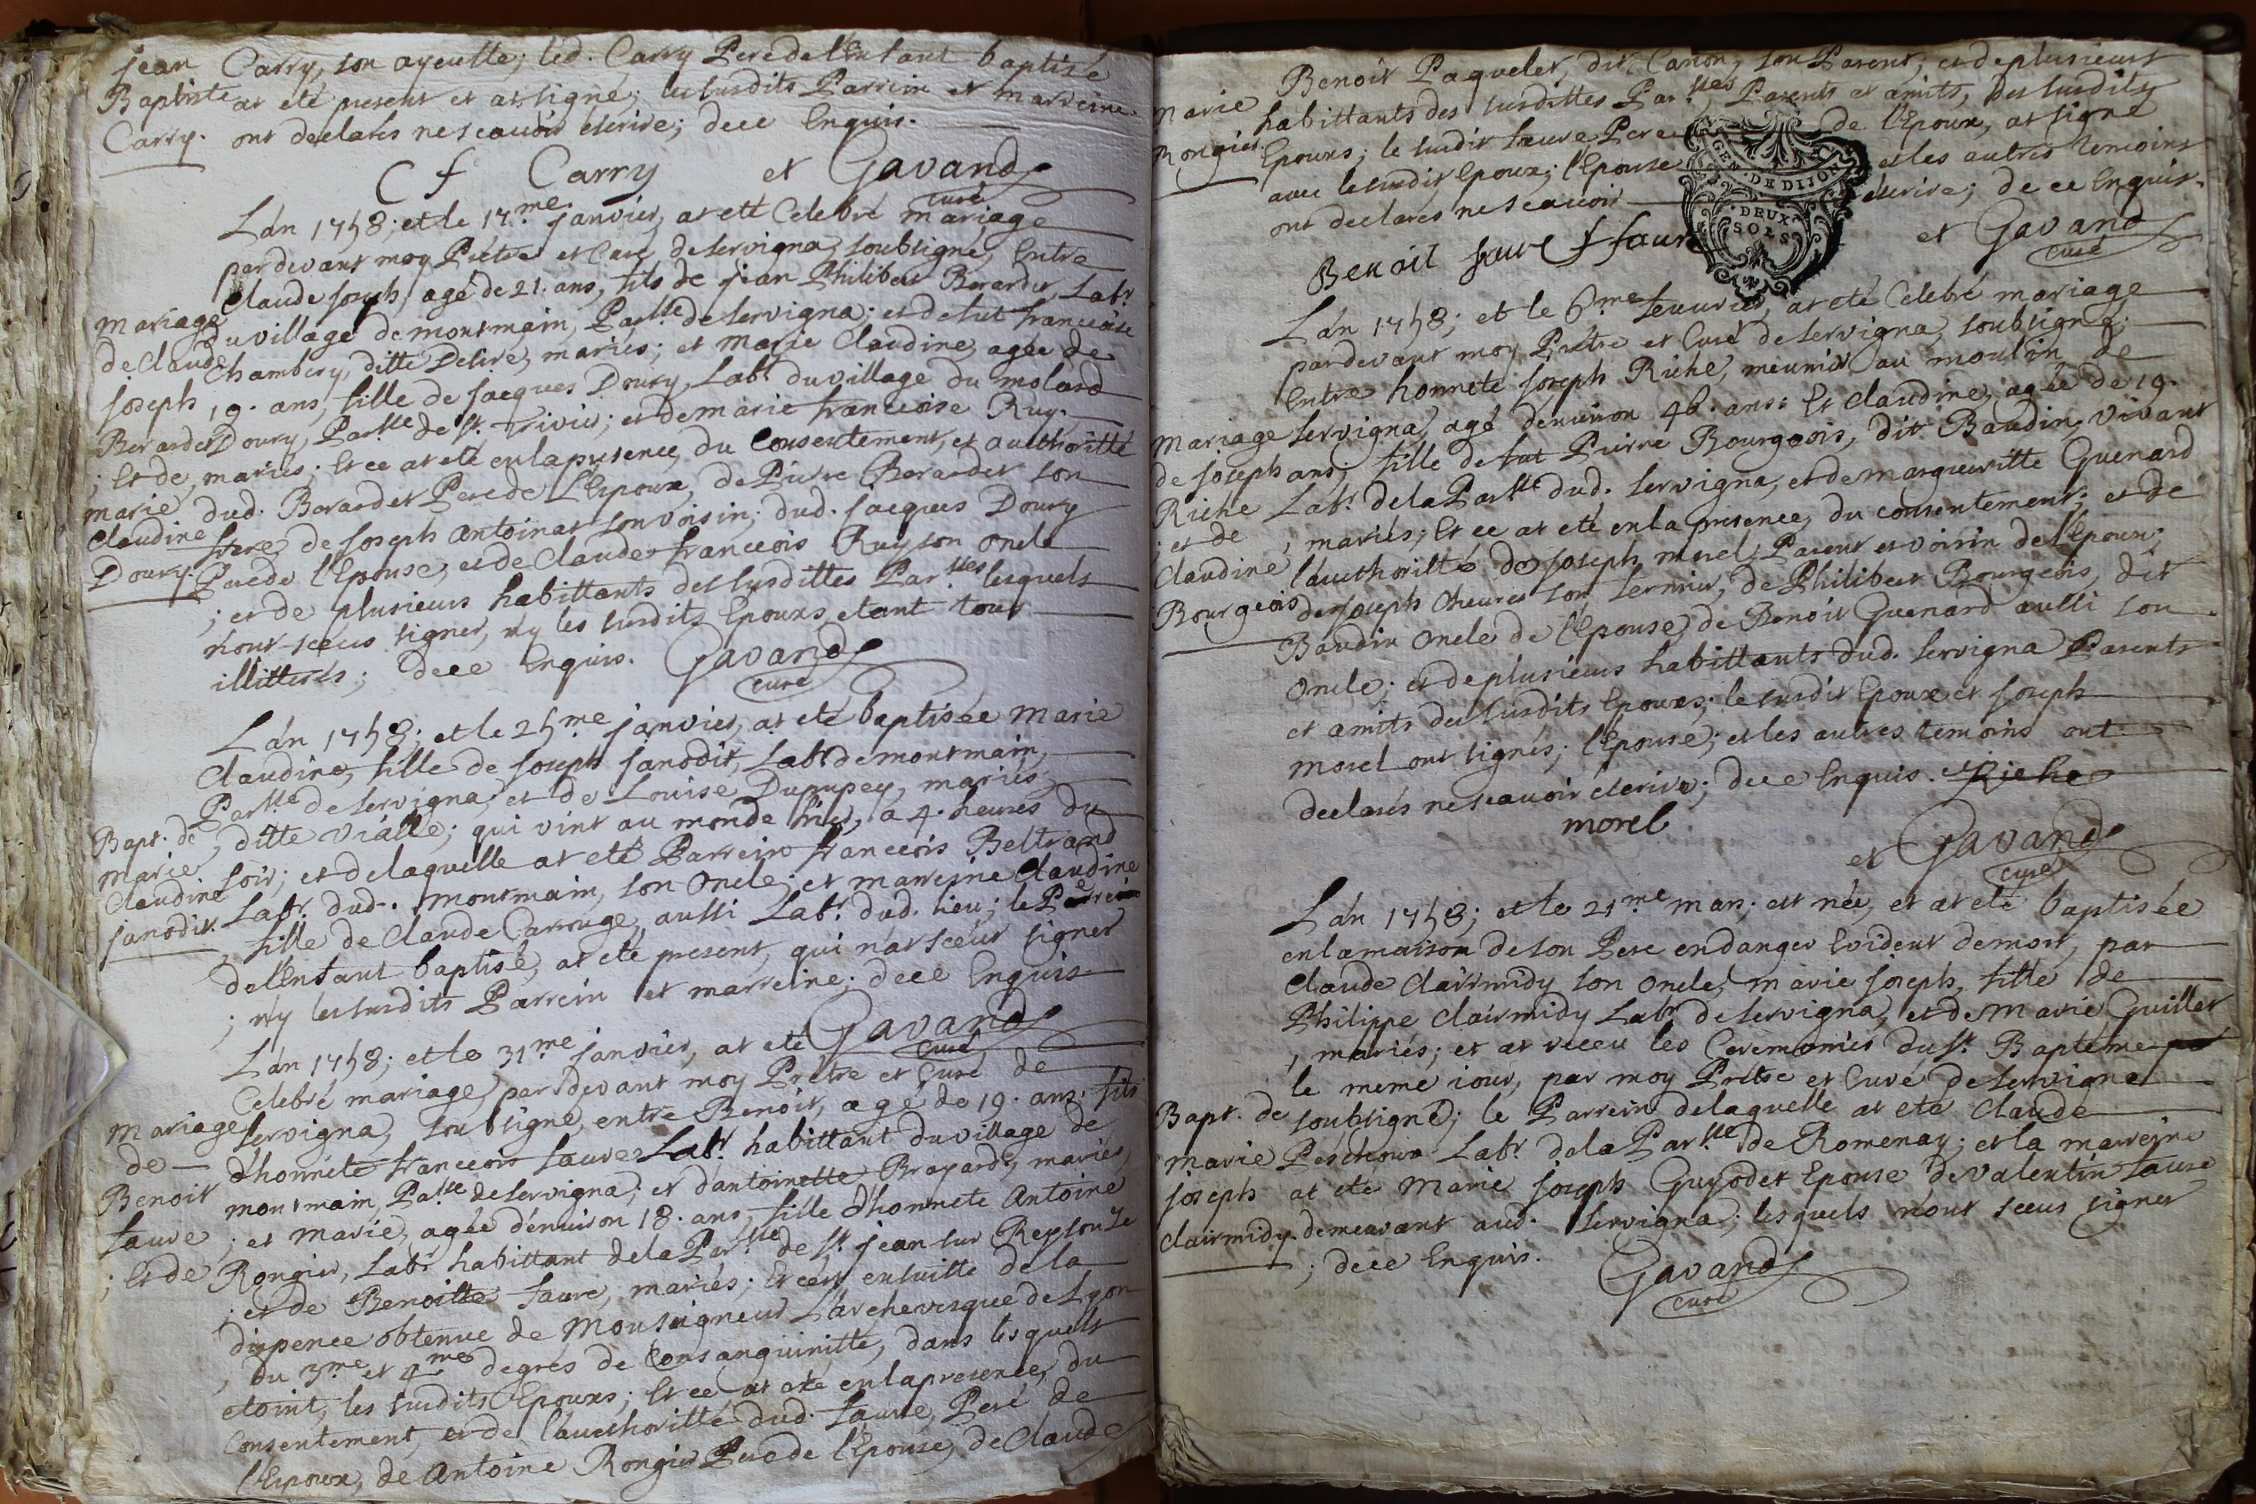 jean Carry, son ayeulle; led. Carry Pere de l'Enfant baptisé
Baptiste at eté present et at signé; les susdits Parrein et marreine
Carry. ont declarés ne scauoir escrire; de ce Enquis.
C f Carry et Gavand
curé
L'an 1758; et le 17.me janvier, at eté Celebré mariage
pardevant moy Prêtre et Curé de servigna, soubsigné, Entre
Claude joseph, agé de 21. ans, fils de jean Philibert Berardet, Labr.
mariage du village de montmain, Parsse de servigna; et de fut francoise
de Claude Chambery, ditte Desire, mariés; et marie Claudine, agée de
joseph 19. ans, fille de jacques Doury, Labr. du village du molard
Berardet Doury, Parsse de st. Trivier; et de marie francoise Ruy.
; et de, mariés; Et ce at eté en la presence, du Consentement, et authoritté
marie dud. Berardet Pere de l'Epoux, de Pierre Berardet son
Claudine frere, de joseph Antoinat son voisin; dud. jacques Doury
Doury. Pere de l'Epouse, et de Claude francois Ruy son oncle
; et de plusieurs habittants des susdittes Parsses lesquels
n'ont sceus signer, n'y les susdits Epoux, etant tous
illitterés; de ce Enquis. Gavand
curé
L'an 1758; et le 25.me janvier, at eté baptisée Marie
Claudine, fille de joseph janodit, Labr. de montmain,
Parsse de servigna, et de Louise Dupupey, mariés
Bapt. de, ditte vialle; qui vint au monde hier, a 4. heures du
marie soir; et de laquelle at eté Parrein francois Beltrand
Claudine Labr. dud. montmain, son Oncle; et marreine Claudine
janodit. fille de Claude Carruge, aussi Labr. dud. lieu; le Pere
de l'Enfant baptisé, at eté present, qui n'at sceut signer
; n'y les susdits Parrein et marreine; de ce Enquis
Gavand
curé
L'an 1758; et le 31.me janvier, at eté
Celebré mariage, pardevant moy Prêtre et Curé de
mariage servigna, soubsigné, entre Benoit, agé de 19. ans, fils
de d'honnête francois faure Labr. habittant du village de
Benoit montmain, Parsse de servigna; et d'antoinette Brayard, mariés,
faure ; et Marie, agée d'enuiron 18. ans, fille d'honnete Antoine
; Et de Rongier, Labr. habittant de la Parsse de st. jean sur Reyssouze
; et de Benoitte faure, mariés; Et ce ensuitte de la
dispence obtenue de Monseigneur L'archevesque de Lyon
, du 3.me et 4.me degres de Consanguinitté, dans lesquels
etoint, les susdits Epoux; Et ce at eté en la presence, du
Consentement, et de l'aucthoritté dud. faure, Peré de
l'Epoux, de Antoine Rongier Pere de l'Epouse, de Claude
Benoit Paquelet, dit Canon, son Parent; et de plusieurs
marie habittants des susdittes Parsses, Parents et amits, des susdits
Rongier. Epoux; le susdit faure Pere de l'Epoux, at signé
avec le susdit Epoux; l'Epouse et les autres temoins
ont declares ne scauoir escrire; de ce Enquis.
GEN. DE DIJON
DEUX
SOLS
Benoit faure f faure et Gavand
curé
L'an 1758; et le 6.me feuurier, at eté Celebré mariage
pardevant moy Prêtre et Curé de servigna, soubsigné;
Entre honnete joseph Riche, meunier au moulin de
mariage servigna, agé d'enuiron 46. ans; Et Claudine, agée de 19.
de joseph ans; fille de Pierre Bourgeois, dit Baudin, vivant
Riche Labr. de la Parsse dud. servigna, et de margueritte Guenard
; et de , mariés; Et ce at eté en la presence, du consentement; et de
Claudine l'aucthoritté de joseph morel, Parent et voisin de l'Epoux;
Bourgeois de joseph Cheuret son fermier, de Philibert Bourgeois, dit
Baudin oncle de l'Epouse, de Benoit Guenard aussi son
Oncle; et de plusieurs habittants dud. servigna Parents
et amits des susdits Epoux; le susdit Epoux et joseph
morel ont signés; l'Epouse; et les autres temoins ont
declarés ne scauoir escrire; de ce Enquis. Riche
morel
et Gavand
curé
L'an 1758; et le 21.me mars; est née, et at eté baptisée
en la maison de son Pere en danger Evident de mort, par
Claude Clairmidy son Oncle, marie joseph, fille de
Philippe Clairmidy Labr. de servigna, et de Marie Guillet
, mariés; et at receu les Ceremonies du st. Baptême
le meme iour, par moy Prêtre et Curé de servigna
Bapt. de soubsigné; le Parrein de laquelle at eté Claude
marie Labr. de la Parsse de Romenay; et la marreine
joseph at eté Marie joseph Guyodet Epouse de valentin faure
Clairmidy. demeurant aud. servigna; lesquels n'ont sceus signer
; de ce Enquis. Gavand
curé